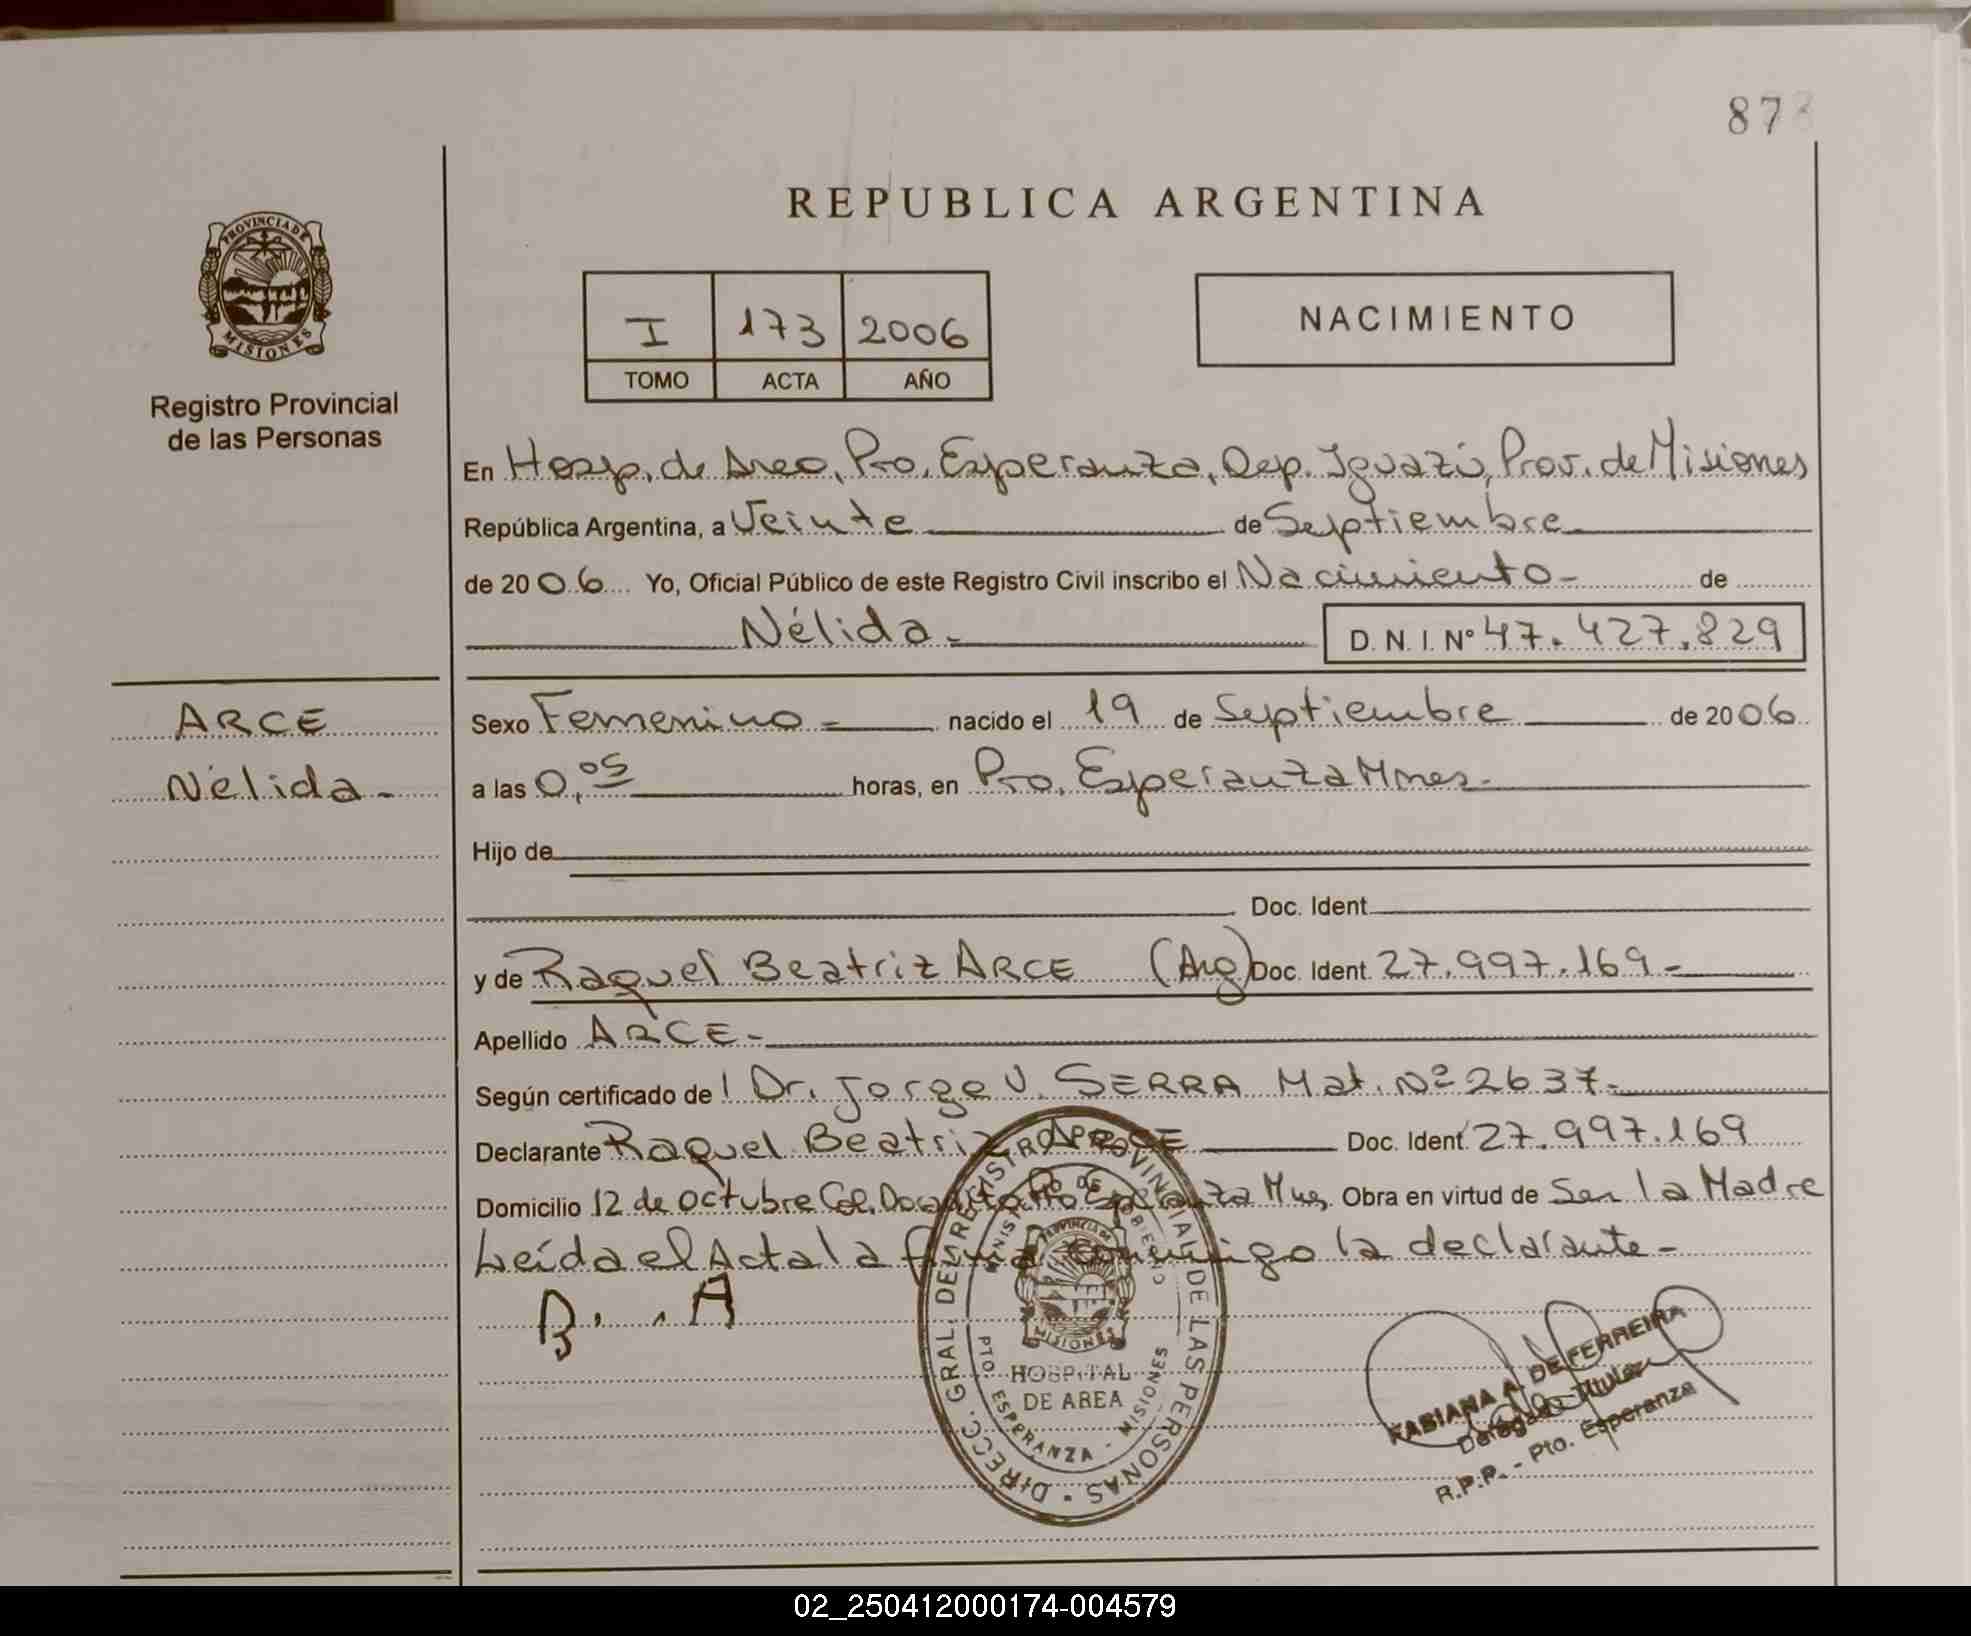 873
PROVINCIA DE
MISIONES
Registro Provincial
de las Personas
REPUBLICA ARGENTINA
I 173 2006
TOMO ACTA AÑO
NACIMIENTO
En Hosp. de Area, Pto. Esperanza, Dep. Iguazú, Prov. de Misiones
República Argentina, a Veinte de Septiembre
de 2006 Yo, Oficial Público de este Registro Civil inscribo el Nacimiento- de
Nélida.- D. N. I. Nº 47.427.829
ARCE
Nélida.-
Sexo Femenino - nacido el 19 de Septiembre de 2006
a las 0,05 horas, en Pto. Esperanza Mnes-
Hijo de
Doc. Ident.
y de Raquel Beatriz ARCE (Arg) Doc. Ident. 27.997.169-
Apellido ARCE-
Según certificado de Dr. Jorge V. SERRA Mat. Nº 2637-
Declarante Raquel Beatriz ARCE Doc. Ident. 27.997.169
Domicilio 12 de Octubre Pto Esperanza Mnes. Obra en virtud de Ser la Madre
Leída el Acta la firma conmigo la declarante-
B. . A
DIRECC. GRAL. DEL REGISTRO PROVINCIAL DE LAS PERSONAS
MINISTERIO DE GOBIERNO
PROVINCIA DE
MISIONES
HOSPITAL
DE AREA
PTO. ESPERANZA - MISIONES
FABIANA A. DE FERREIRA
Delegada Titular
R.P.P. - Pto. Esperanza
02_250412000174-004579